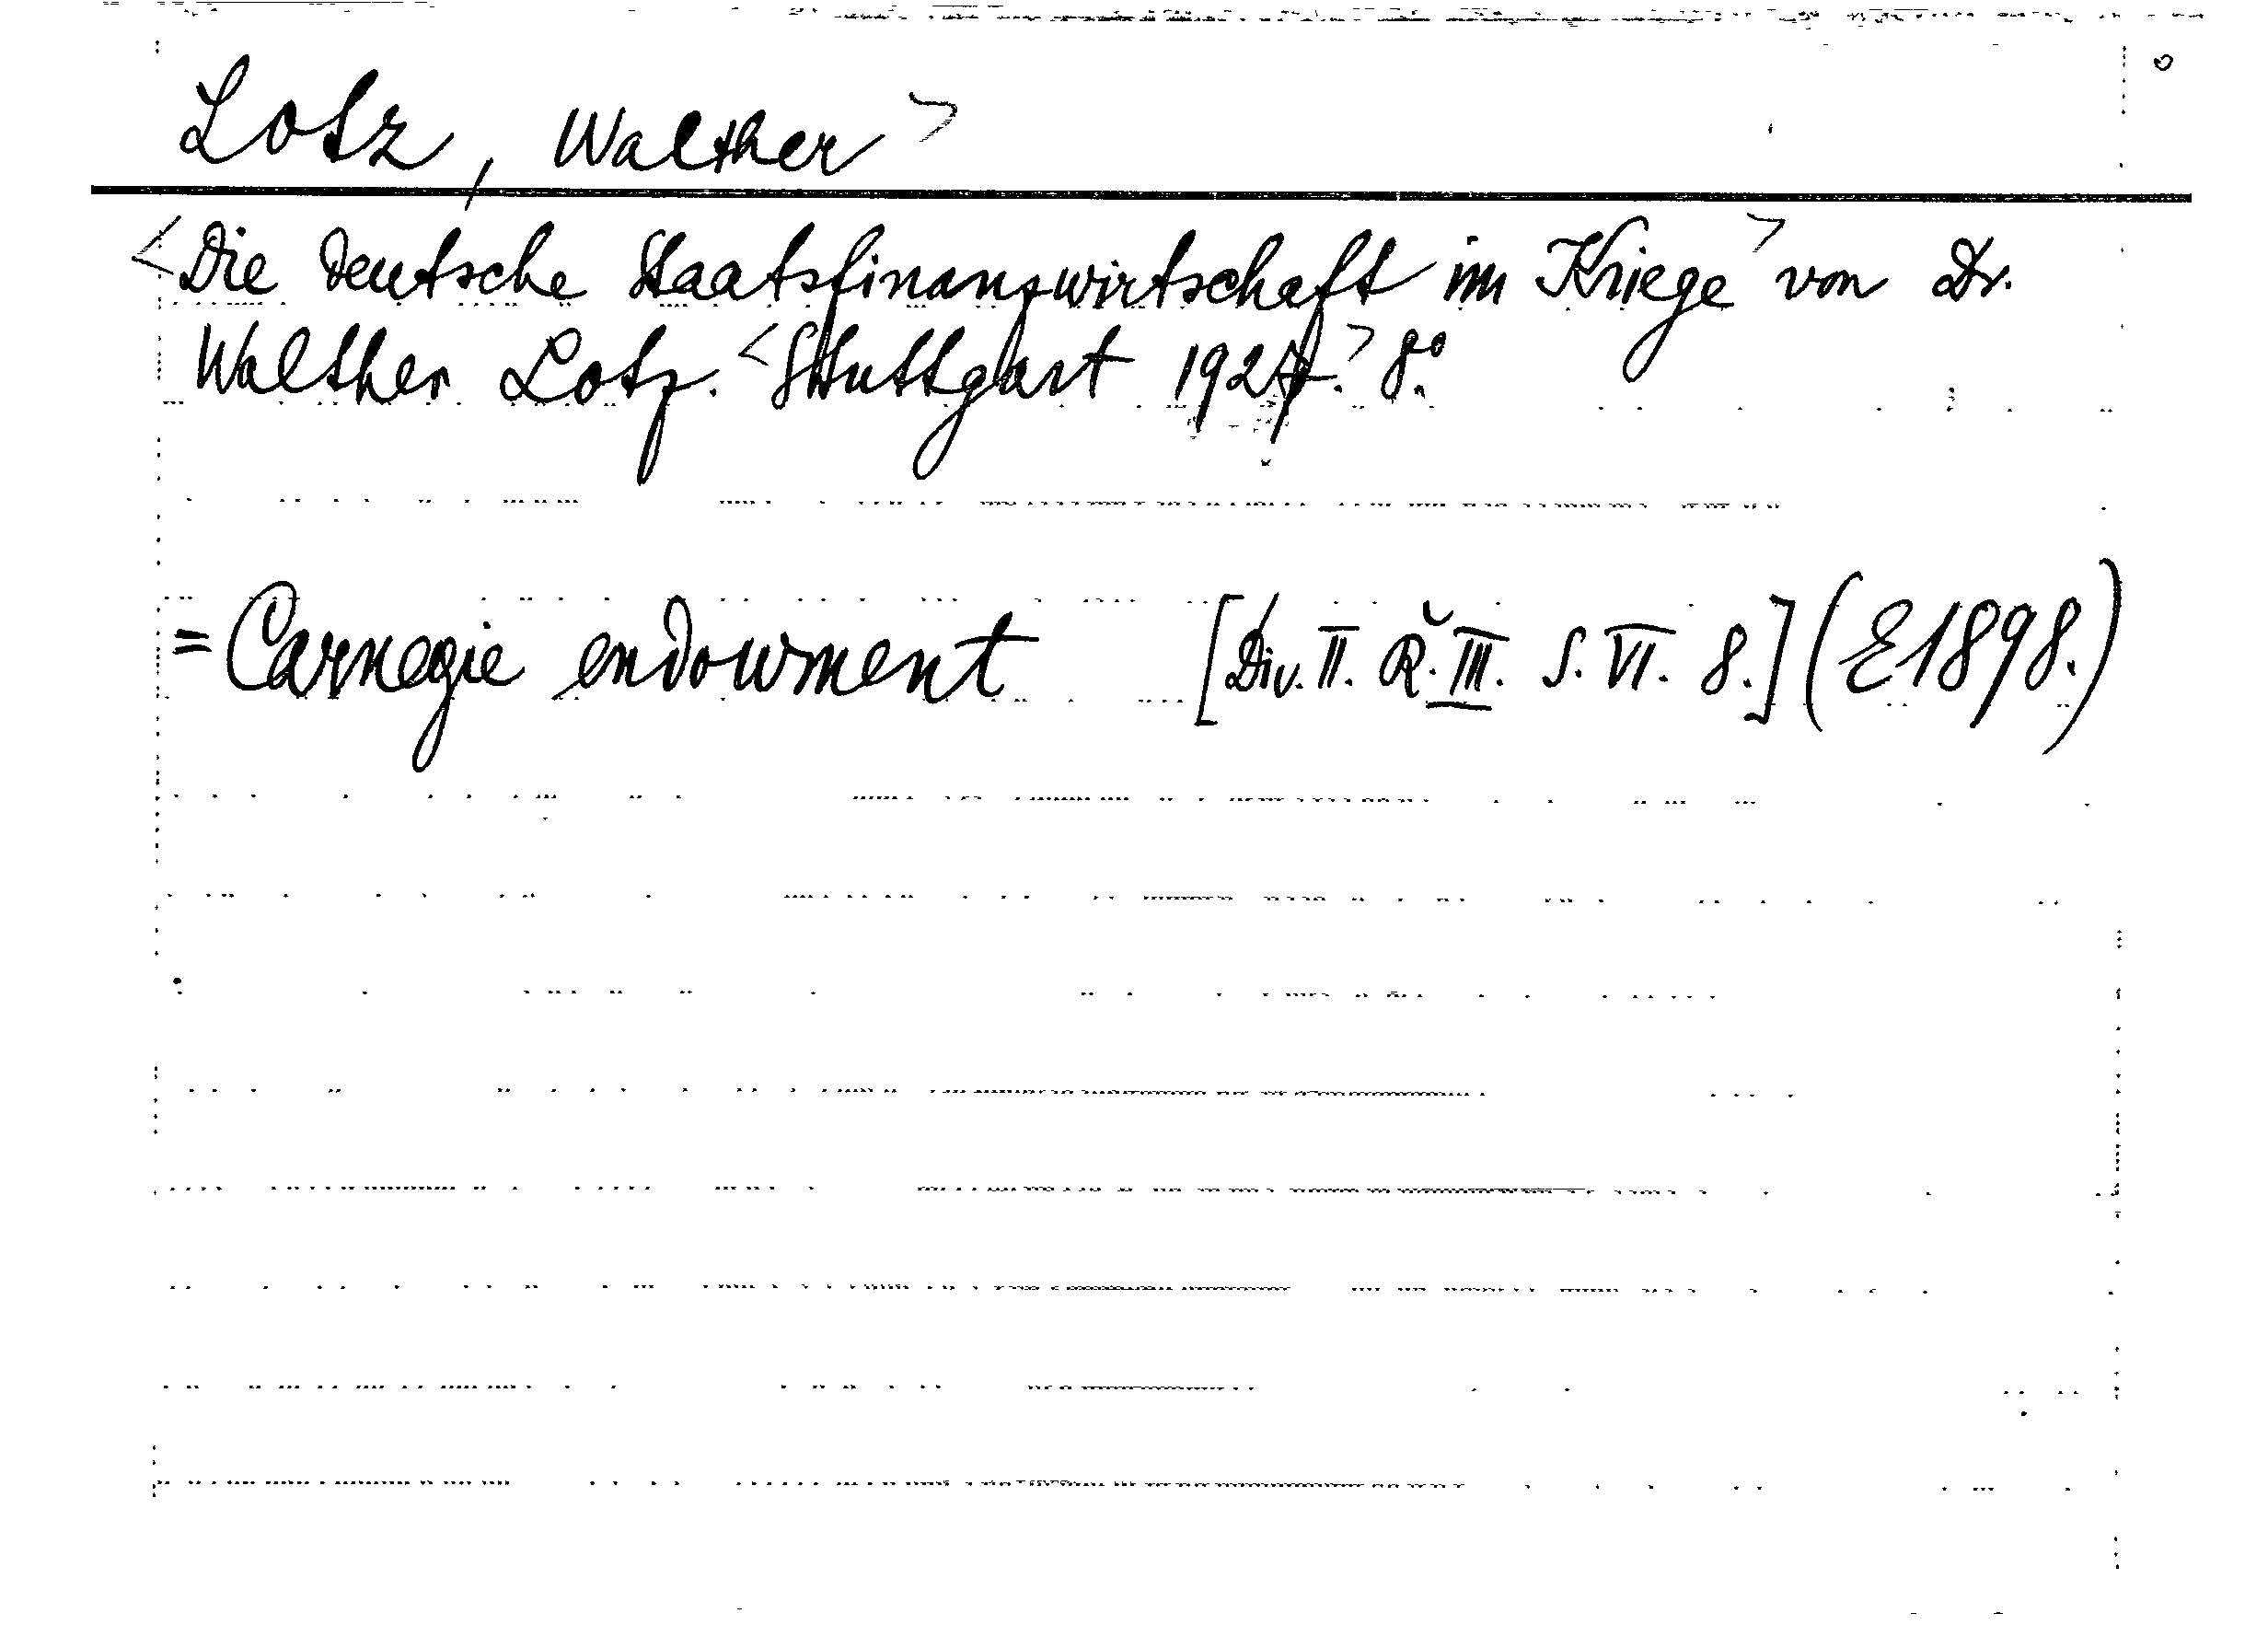 Lotz, Walther>
<Die deutsche Staatsfinanzwirtschaft im Kriege> von Dr.
Walther Lotz. <Stuttgart 1927.> 8.°
= Carnegie endowment [Div. II. R. III. S. VI. 8.] (E1898.)